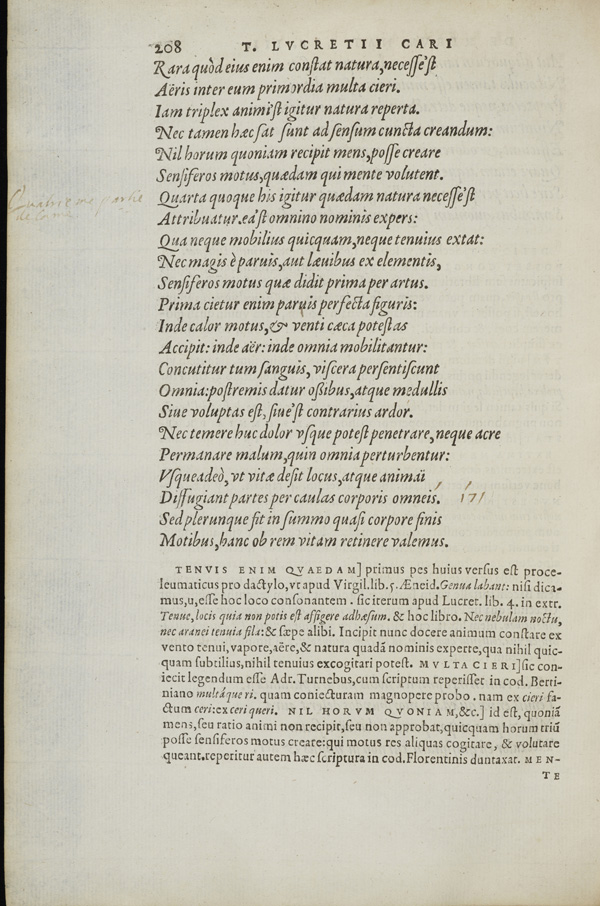 208 T. LVCRETII CARI
Rara quòd eius enim constat natura, necesse'st
Aëris inter eum primordia multa cieri.
Iam triplex animi'st igitur natura reperta.
Nec tamen hæc sat sunt ad sensum cuncta creandum:
Nil horum quoniam recipit mens, posse creare
Sensiferos motus, quædam qui mente volutent.
Quarta quoque his igitur quædam natura necesse'st
Attribuatur. ea'st omnino nominis expers:
Qua neque mobilius quicquam, neque tenuius extat:
Nec magis è paruis, aut læuibus ex elementis,
Sensiferos motus quæ didit prima per artus.
Prima cietur enim paruis perfecta figuris:
Inde calor motus, & venti cæca potestas
Accipit: inde aër: inde omnia mobilitantur:
Concutitur tum sanguis, viscera persentiscunt
Omnia: postremis datur ossibus, atque medullis
Siue voluptas est, siue'st contrarius ardor.
Nec temere huc dolor vsque potest penetrare, neque acre
Permanare malum, quin omnia perturbentur:
Vsqueadeò, vt vitæ desit locus, atque animaï
Diffugiant partes per caulas corporis omneis. 171
Sed plerunque fit in summo quasi corpore finis
Motibus, hanc ob rem vitam retinere valemus.
TENVIS ENIM QVAEDAM] primus pes huius versus est proce-
leumaticus pro dactylo, vt apud Virgil. lib. 5. Æneid. Genua labant: nisi dica-
mus, u, esse hoc loco consonantem. sic iterum apud Lucret. lib. 4. in extr.
Tenue, locis quia non potis est affigere adhæsum. & hoc libro. Nec nebulam noctu,
nec aranei tenuia fila: & sæpe alibi. Incipit nunc docere animum constare ex
vento tenui, vapore, aëre, & natura quadā nominis experte, qua nihil quic-
quam subtilius, nihil tenuius excogitari potest. MVLTA CIERI] sic con-
iecit legendum esse Adr. Turnebus, cum scriptum reperisset in cod. Berti-
niano multáque ri. quam coniecturam magnopere probo. nam ex cieri fa-
ctum ceri: ex ceri queri. NIL HORVM QVONIAM, &c.] id est, quoniā
mens, seu ratio animi non recipit, seu non approbat, quicquam horum triū
posse sensiferos motus creare: qui motus res aliquas cogitare, & volutare
queant. reperitur autem hæc scriptura in cod. Florentinis duntaxat. MEN-
TE